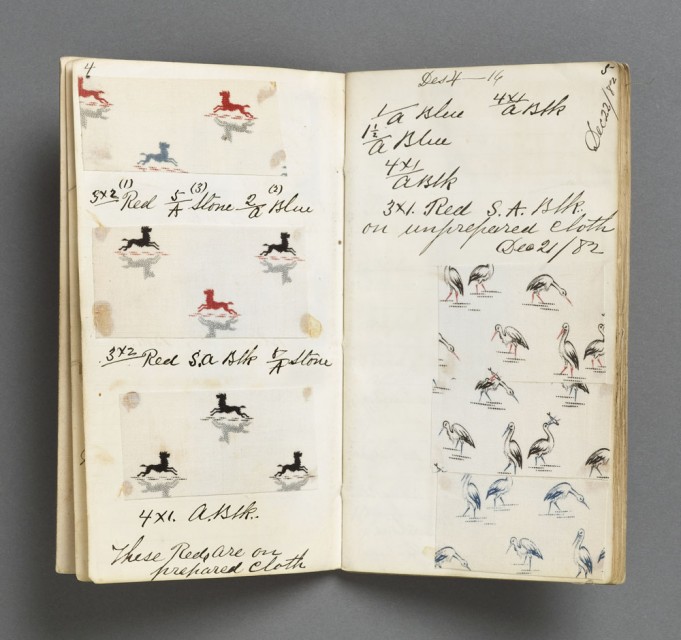 4
3x2 (1) Red 5/A (3) Stone 2/a (3) Blue
3x2 Red S.A Blk 5/A Stone
4x1. A.Blk.
These Reds are on
prepared cloth
5
Des 4 — 14
Dec 22/82
1/a Blue 4x1/a Blk
1½/a Blue
4x1/A Blk
3x1. Red S.A. Blk.
on unprepared cloth
Dec 21/82